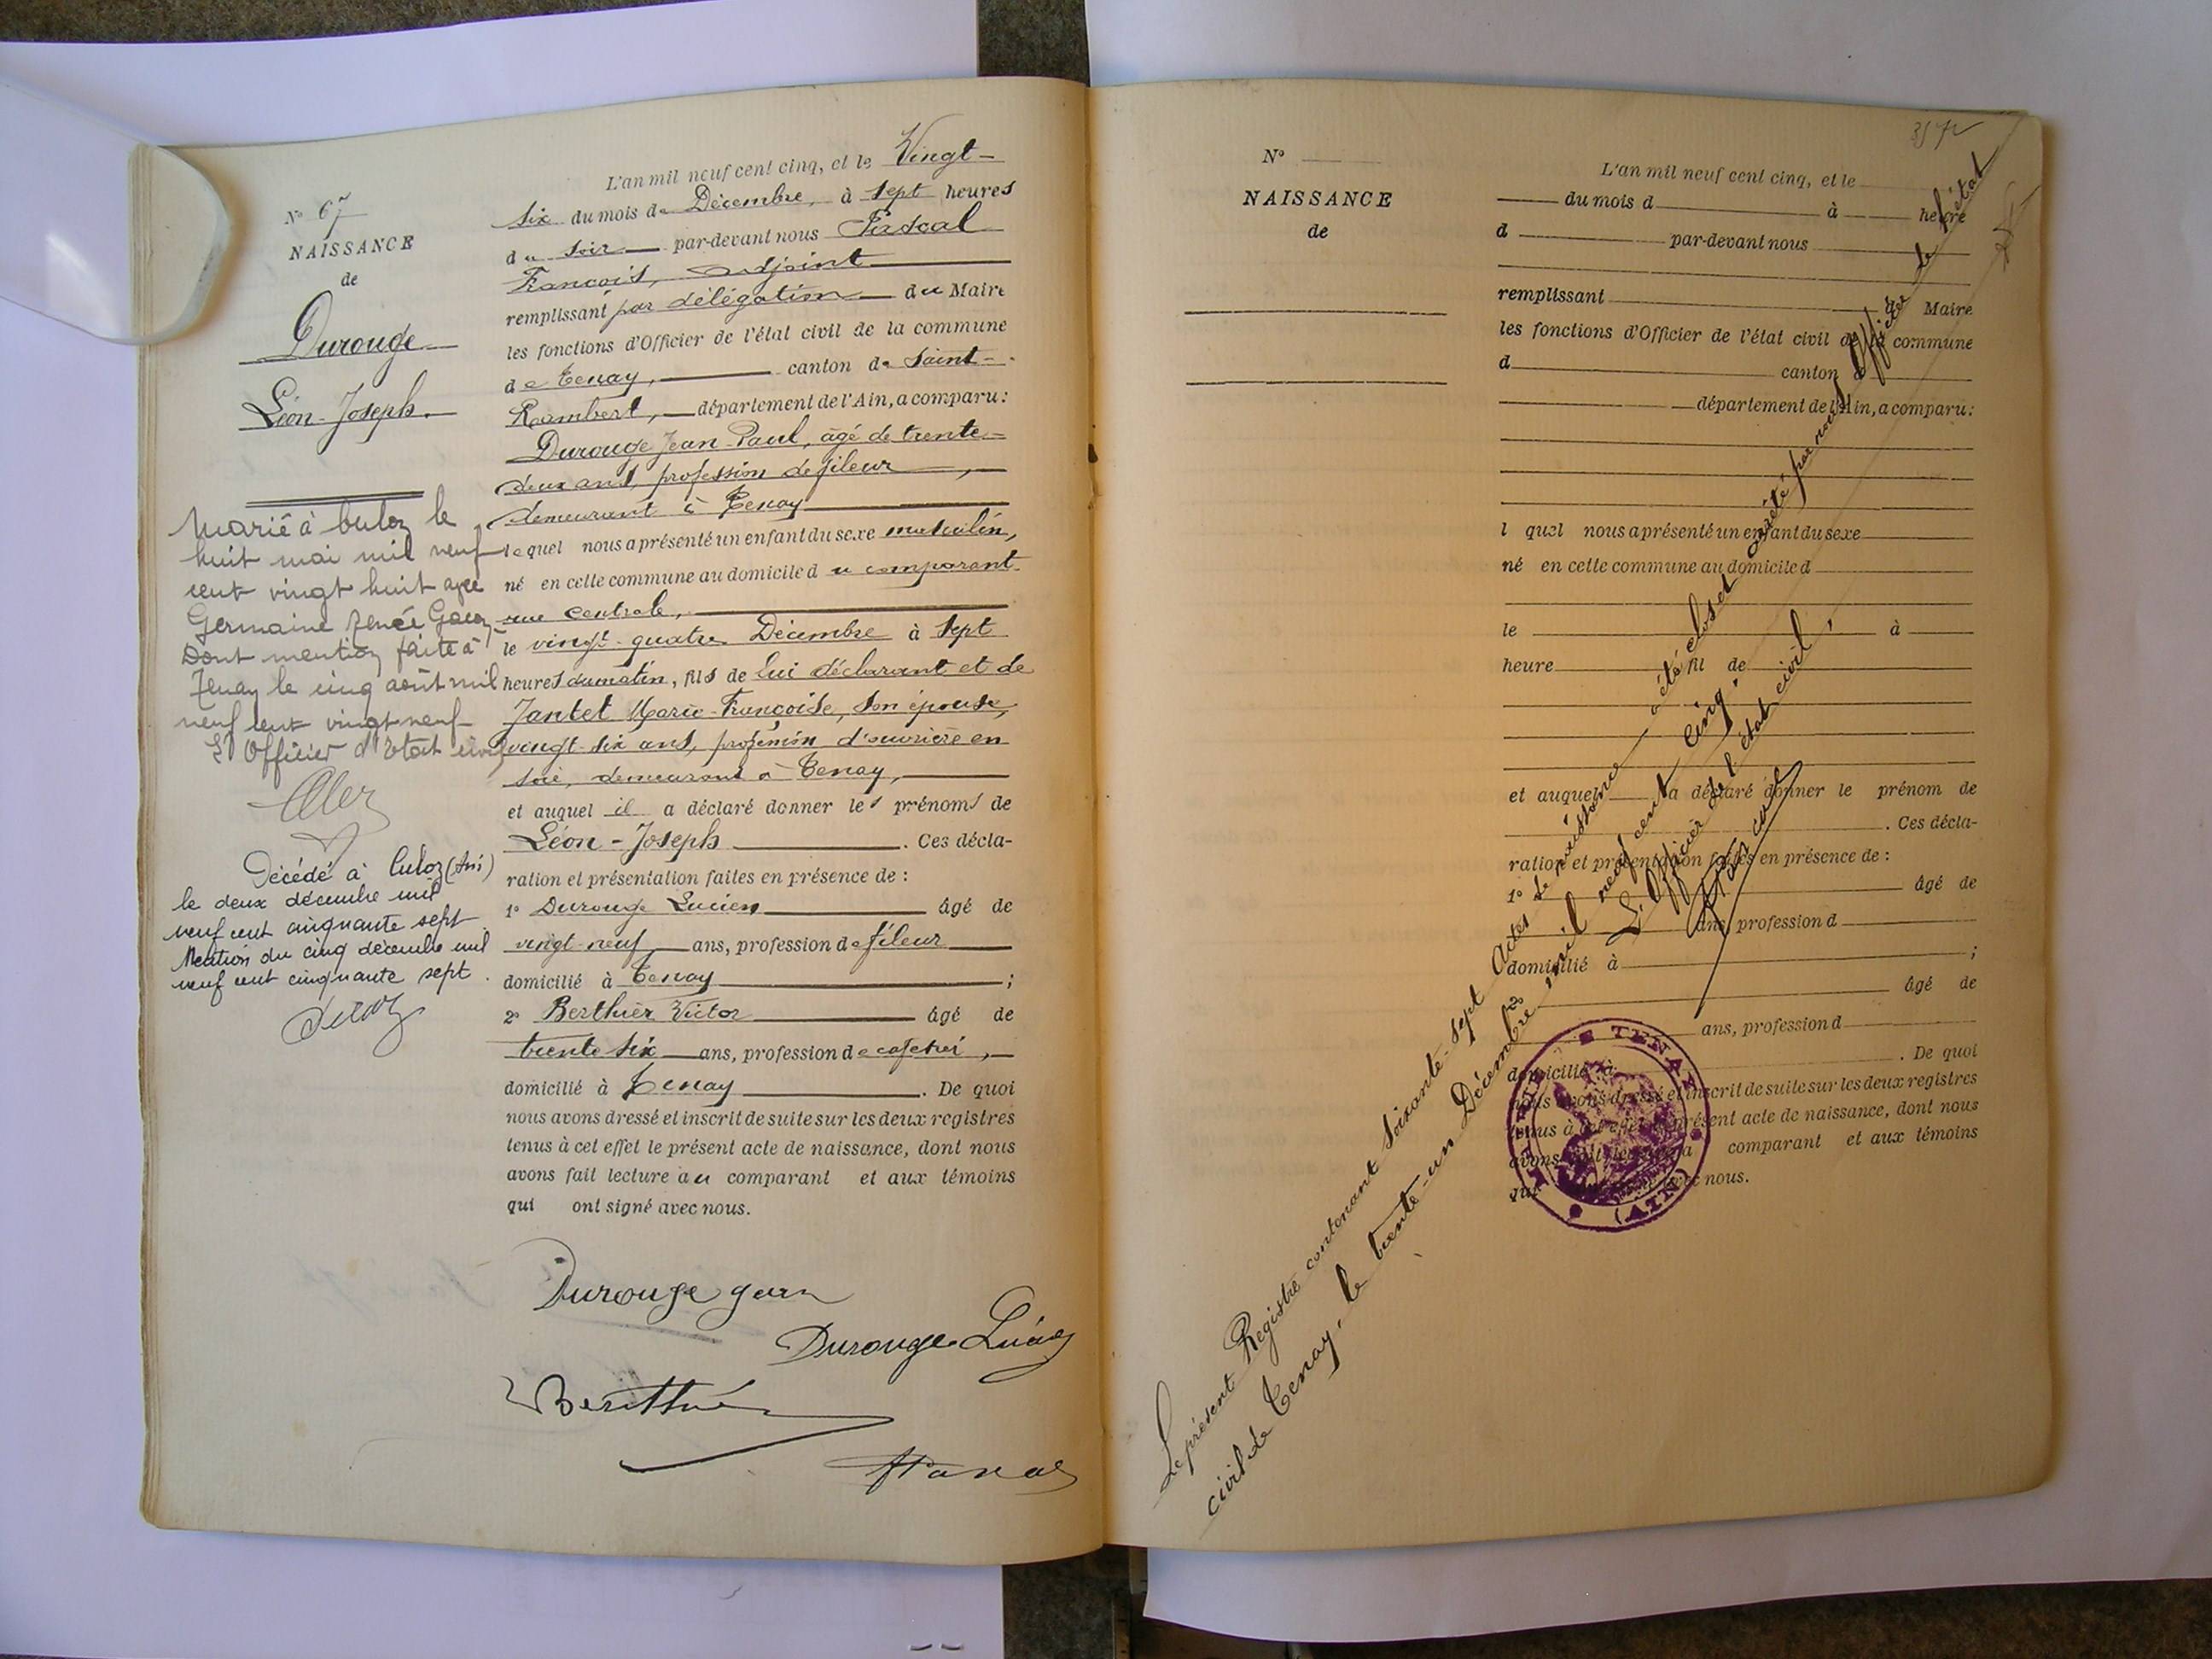 N° 67
NAISSANCE
de
Durouge
Léon-Joseph.
Marié à Culoz le
huit mai mil neuf
cent vingt huit avec
Germaine Renée
Dont mention faite à
Tenay le cinq août mil
neuf cent vingt neuf
L'Officier d'Etat civil
Décédé à Culoz (Ain)
le deux décembre mil
neuf cent cinquante sept
Mention du cinq décembre mil
neuf cent cinquante sept.
L'an mil neuf cent cinq, et le Vingt-
six du mois de Décembre, à sept heures
du soir par-devant nous Pascal
François, adjoint
remplissant par délégation du Maire
les fonctions d'Officier de l'état civil de la commune
de Tenay, canton de Saint-
Rambert, département de l'Ain, a comparu:
Durouge Jean-Paul, âgé de trente-
deux ans, profession de fileur,
demeurant à Tenay
lequel nous a présenté un enfant du sexe masculin,
né en cette commune au domicile du comparant
rue centrale,
le vingt-quatre Décembre à sept
heures du matin, fils de lui déclarant et de
Jantet Marie-Françoise, son épouse,
vingt-six ans, profession d'ouvrière en
soie, demeurant à Tenay,
et auquel il a déclaré donner les prénoms de
Léon-Joseph. Ces décla-
ration et présentation faites en présence de:
1° Durouge Lucien âgé de
vingt-neuf ans, profession de fileur
domicilié à Tenay;
2° Berthier Victor âgé de
trente six ans, profession de cafetier,
domicilié à Tenay. De quoi
nous avons dressé et inscrit de suite sur les deux registres
tenus à cet effet le présent acte de naissance, dont nous
avons fait lecture au comparant et aux témoins
qui ont signé avec nous.
Durouge
Durouge
N°
NAISSANCE
de
L'an mil neuf cent cinq, et le
du mois d à heure
d par-devant nous
remplissant de Maire
les fonctions d'Officier de l'état civil de la commune
d canton d
département de l'Ain, a comparu:
l quel nous a présenté un enfant du sexe
né en cette commune au domicile d
le à
heure fil de
et auquel a déclaré donner le prénom de
. Ces décla-
ration et présentation faites en présence de:
1° âgé de
ans, profession d
domicilié à ;
2° âgé de
ans, profession d
domicilié à . De quoi
nous avons dressé et inscrit de suite sur les deux registres
tenus à cet effet le présent acte de naissance, dont nous
avons fait lecture a comparant et aux témoins
qui avec nous.
Le présent Registre contenant soixante-sept Actes de naissance a été clos et arrêté par nous Officier de l'état
civil de Tenay, le trente-un Décembre mil neuf cent cinq.
L'Officier de l'état civil,
MAIRIE DE TENAY
(AIN)